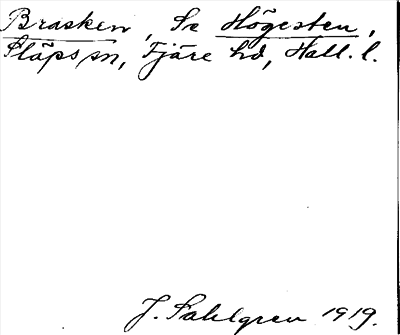 Brasken, Se Högesten,
Släps sn, Fjäre hd, Hall. l.
J. Sahlgren 1919.